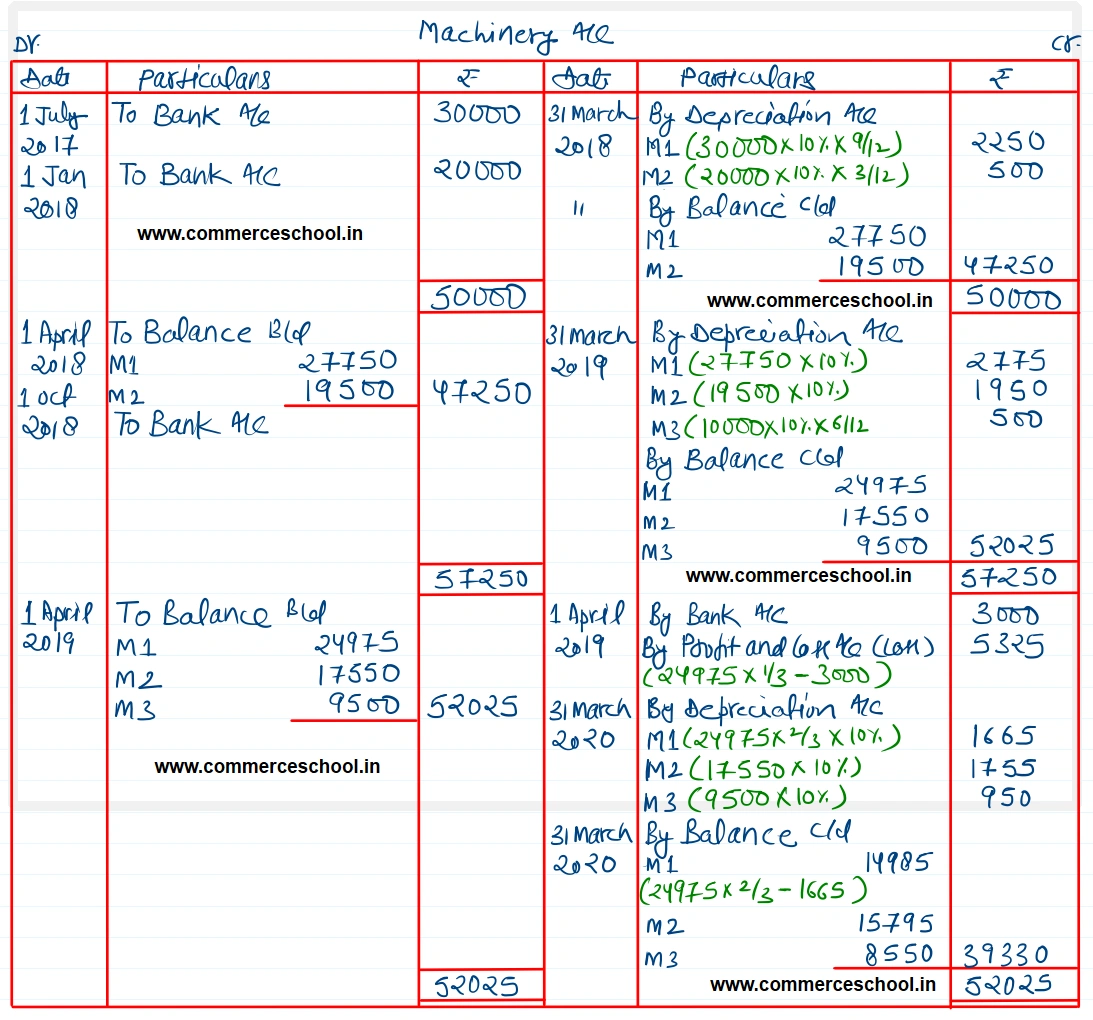 Machinery A/C
Dr. Cr.
Date Particulars ₹ Date Particulars ₹
1 July To Bank A/c 30000 31 March By Depreciation A/c
2017 2018 M1 (30000 x 10% x 9/12) 2250
1 Jan To Bank A/C 20000 M2 (20000 x 10% x 3/12) 500
2018 " By Balance c/d
www.commerceschool.in M1 27750
M2 19500 47250
50000 www.commerceschool.in 50000
1 April To Balance B/d 31 march By Depreciation A/c
2018 M1 27750 2019 M1 (27750 x 10%) 2775
1 Oct M2 19500 47250 M2 (19500 x 10%) 1950
2018 To Bank A/c M3 (10000 x 10% x 6/12 500
By Balance C/d
M1 24975
M2 17550
M3 9500 52025
57250 www.commerceschool.in 57250
1 April To Balance B/d 1 April By Bank A/C 3000
2019 M1 24975 2019 By Profit and Loss A/c (Loss) 5325
M2 17550 (24975 x 1/3 - 3000)
M3 9500 52025 31 March By Depreciation A/C
2020 M1 (24975 x 2/3 x 10%) 1665
www.commerceschool.in M2 (17550 x 10%) 1755
M3 (9500 x 10%) 950
31 March By Balance c/d
2020 M1 14985
(24975 x 2/3 - 1665)
M2 15795
M3 8550 39330
52025 www.commerceschool.in 52025